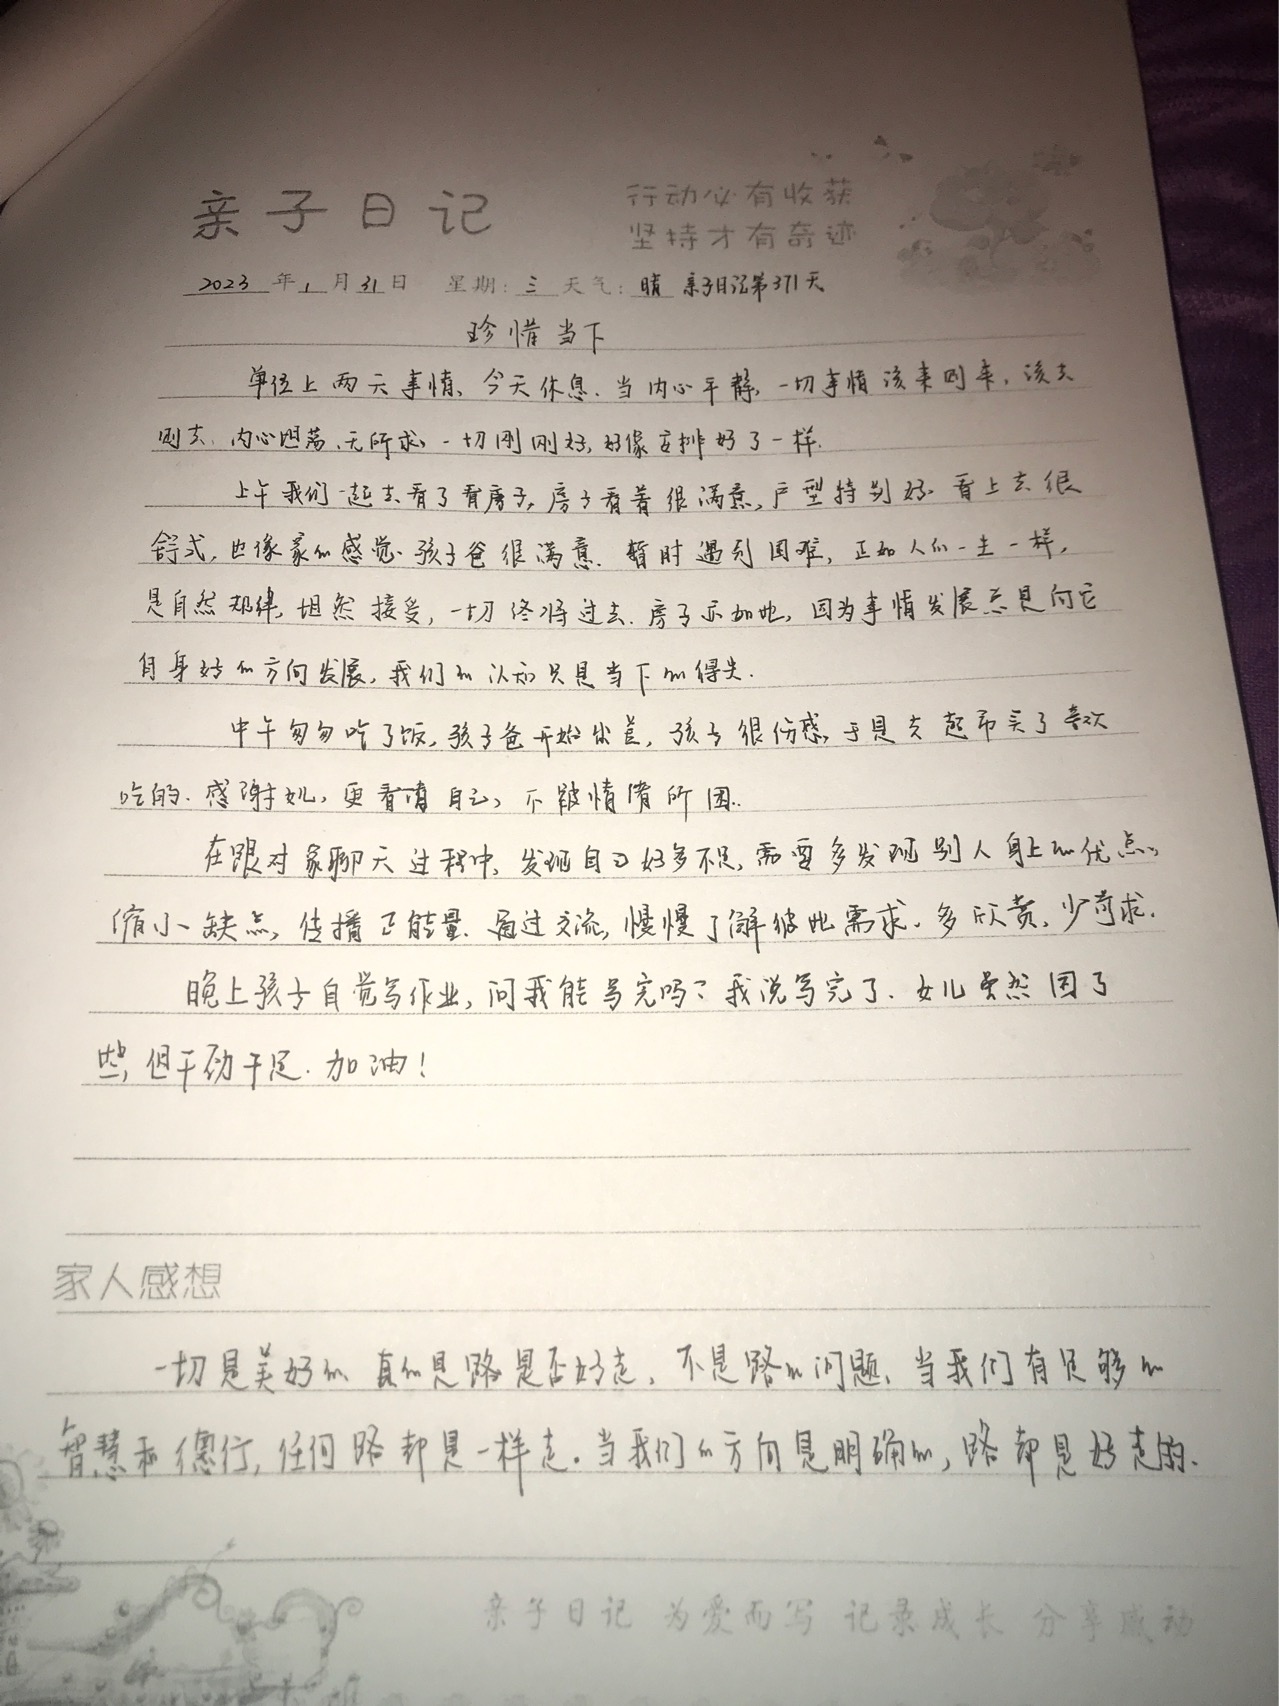 亲子日记
行动必有收获
坚持才有奇迹
2023年1月31日 星期:三 天气:晴 亲子日记第371天
珍惜当下
单位上两天事情、今天休息.当内心平静,一切事情该来则来,该去
则去,内心坦荡、无所求,一切刚刚好,好像安排好了一样.
上午我们一起去看了看房子,房子看着很满意,户型特别好.看上去很
舒式,也像家的感觉.孩子爸很满意.暂时遇到困难,正如人们一生一样,
是自然规律,坦然接受,一切终将过去.房子亦如此,因为事情发展总是向它
自身好的方向发展,我们的认知只是当下的得失.
中午匆匆吃了饭,孩子爸开始出差,孩子很伤感,于是去超市买了喜欢
吃的.感谢女儿,更看清自己,不被情绪所困.
在跟对象聊天过程中,发现自己好多不足,需要多发现别人身上的优点,
缩小缺点,传播正能量.通过交流,慢慢了解彼此需求.多欣赏,少苛求.
晚上孩子自觉写作业,问我能写完吗?我说写完了.女儿虽然困了
些,但干劲十足.加油!
家人感想
一切是美好的.真的是路是否好走,不是路的问题,当我们有足够的
智慧和德行,任何路都是一样走。当我们的方向是明确的,路都是好走的.
亲子日记 为爱而写 记录成长 分享感动